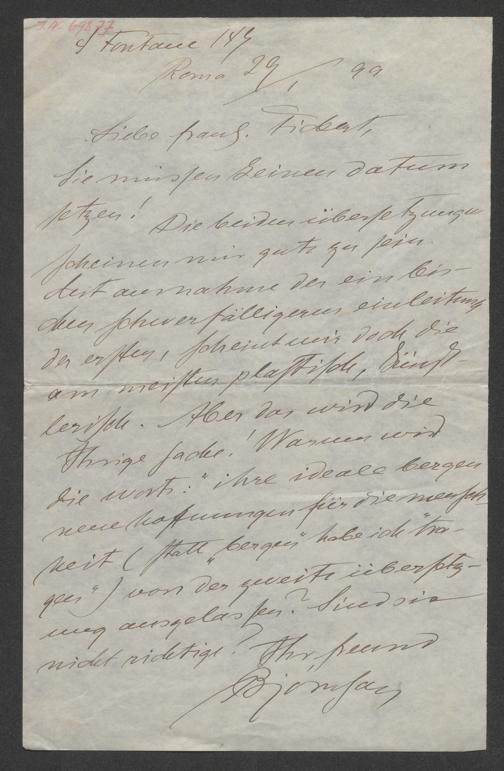 J.N. 69877
Fontane 149
Roma 29/1 99
Liebe fraul. Fickert,
Sie müssen keinen datum
setzen! Die beiden übersetzungen
scheinen mir gute zu sein.
Mit ausnahme der ein bis-
chen schwerfälligeren einleitung
der ersten, scheint mir doch die
am meisten plastisch, künst-
lerisch. Aber das wird die
Ihrige sache! Warum wird
die worte: "ihre ideale bergen
neue hoffnungen für die mensch
heit (statt "bergen" habe ich "tra-
gen") von der zweite übersetz-
ung ausgelassen? Sind sie
nicht richtige? Ihr freund
Bjørnson